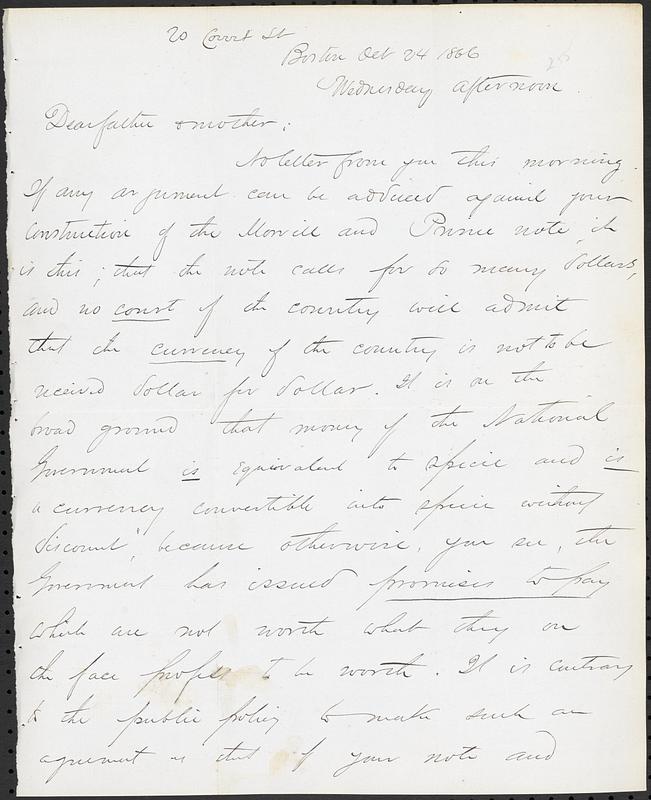 20 Court St
Boston Oct 24 1866
Wednesday afternoon.
Dear father & mother;
No letter from you this morning.
If any argument can be adduced against your
construction of the Morrill and note, it
is this; that the note calls for so many dollars,
and no court of the country will admit
that the currency of the country is not to be
received dollar for dollar. It is on the
broad ground that money of the National
Government is equivalent to specie and is
a currency convertible into specie without
discount, because otherwise, you see, the
Government has issued promises to pay
which are not worth what they on
the face profess to be worth. It is contrary
to the public policy to make such an
agreement as that of your note and